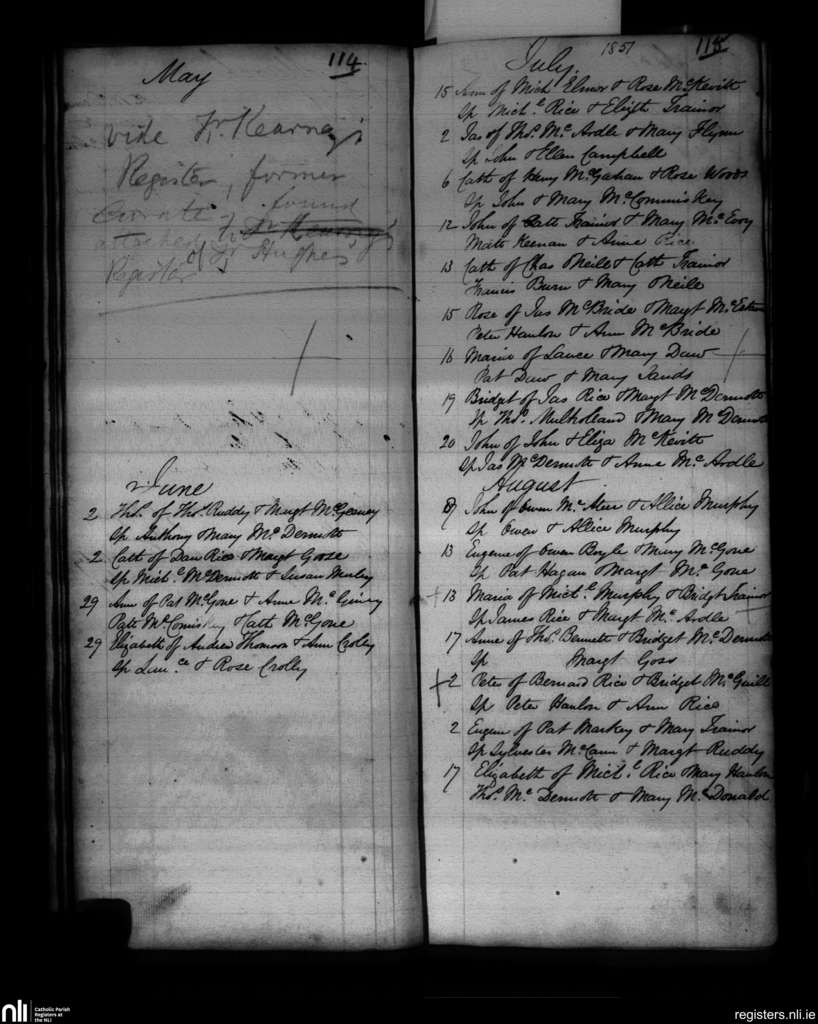 114
May
vide Fr. Kearney's
Register, former
Currate found
attached to Fr Kearney's
of Fr Hughes'
Register
June
2 Thos. of Thos. Ruddy & Margt McGeeney
Sp Anthony & Mary Mc Dermott
2 Cath of Dan Rice & Margt Goss
Sp Mich.l McDermott & Susan
29 Ann of Pat McGone & Anne Mc
Patt McComiskey & Cath McGone
29 Elizabeth of Andrew Thomson & Ann Crolly
Sp & Rose Crolly
1851 115
July
15 Ann of Mich Elmor & Rose McKevitt
Sp Mich.l Rice & Elizth Trainor
2 Jas of Thos. Mc Ardle & Mary Flynn
Sp John & Ellen Campbell
6 Cath of Henry McGahan & Rose Woods
Sp John & Mary McCommiskey
12 John of Cath Trainor & Mary Mc Evoy
Matt Keenan & Anne Rice
13 Cath of Chas ONeile & Cath Trainor
Francis Burn & Mary ONeile
15 Rose of Jas McBride & Margt
Peter Hanlon & Ann McBride
16 Maria of Lance & Mary Daw
Pat Daw & Mary Sands
19 Bridget of Jas Rice & Margt McDermott
Sp Thos. Mulholland & Mary McDermott
20 John of John & Eliza McKevitt
Sp Jas McDermott & Anne Mc Ardle
August
John of Owen Mc Atee & Allice Murphy
Sp Owen & Allice Murphy
13 Eugene of Owen Boyle & Mary McGone
Sp Pat Hagan & Margt Mc Gone
13 Maria of Mich.l Murphy & Bridgt Trainor
Sp James Rice & Margt Mc Ardle
17 Anne of Thos. Bennett & Bridget McDermott
Sp Margt Goss
2 Peter of Bernard Rice & Bridget McGuill
Sp Peter Hanlon & Ann Rice
2 Eugene of Pat Markey & Mary Trainor
Sp Sylvester McCann & Margt Ruddy
17 Elizabeth of Mich.l Rice Mary Hanlon
Thos. Mc Dermott & Mary McDonald
nli Catholic Parish
Registers at
the NLI
registers.nli.ie